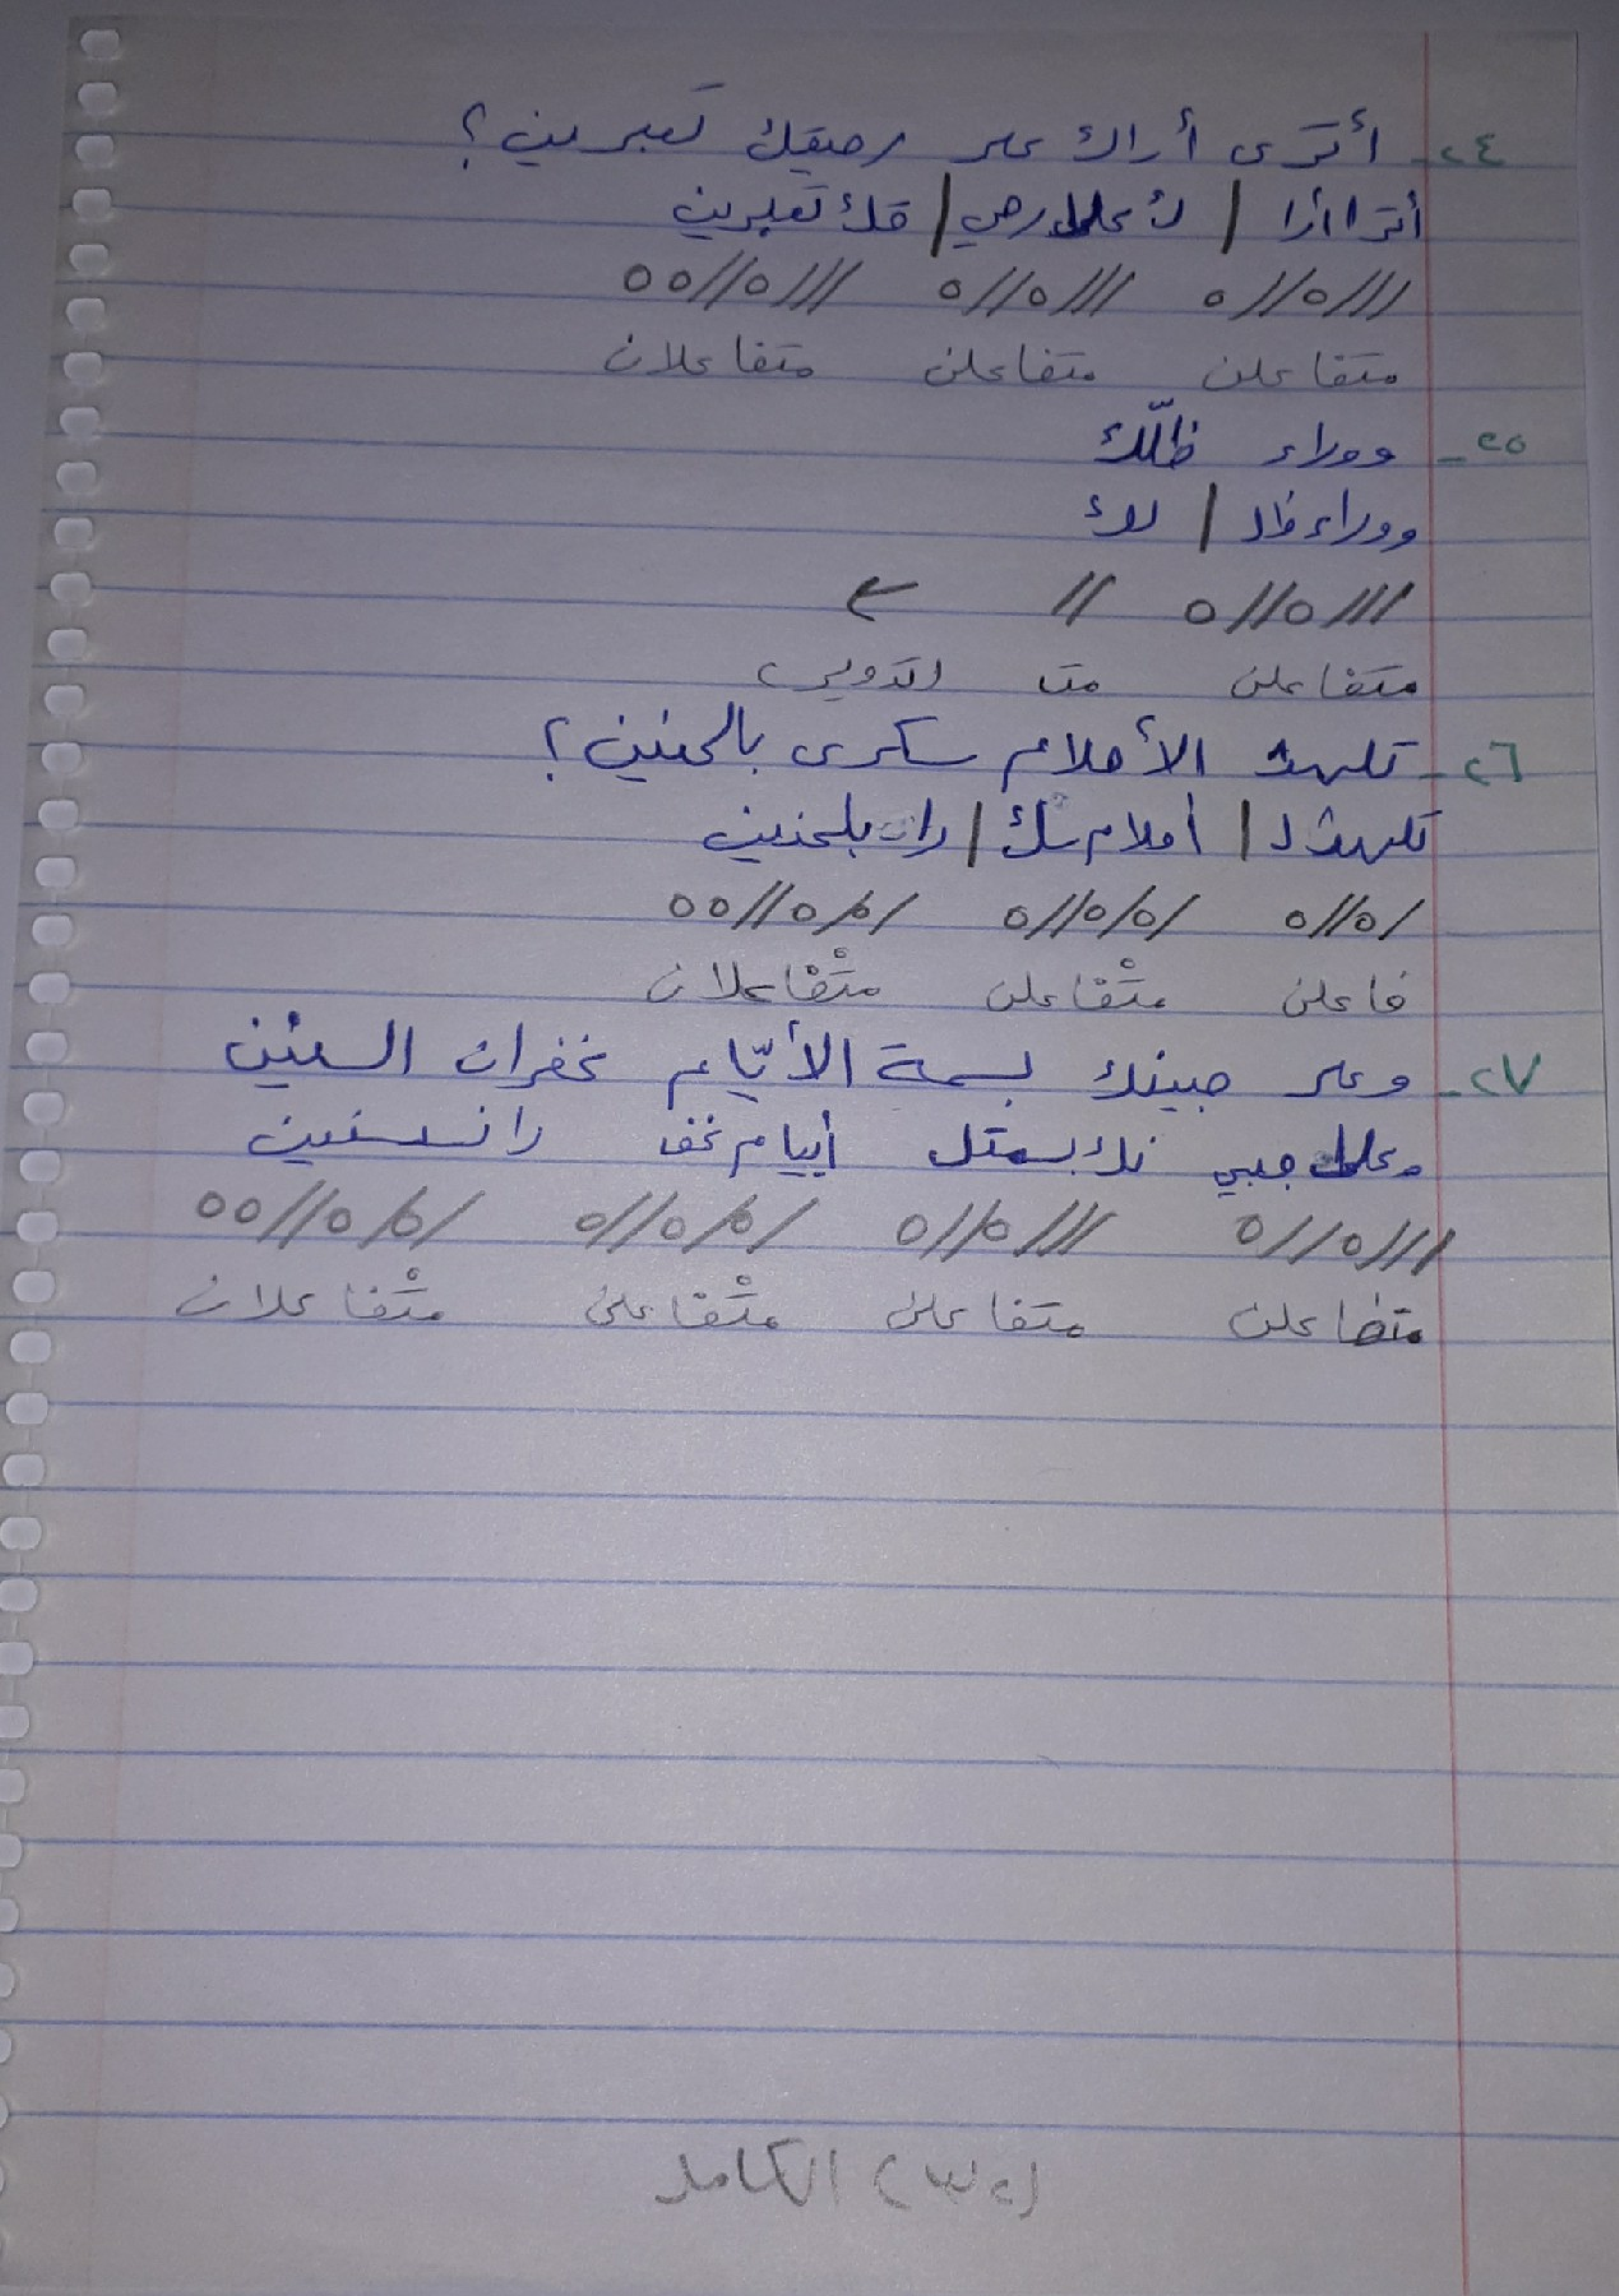 ٢٤- أترى أراك على رحيقك تعبرين؟
أترا أرا / ك على رحي / قك تعبرين
///0//0 ///0//0 ///0//00
متفاعلن متفاعلن متفاعلان
٢٥- ووراء ظلّك
ووراء ظل / لك
///0//0 //
متفاعلن متـ (تدوير)
٢٦- تلهث الأحلام سكرى بالحنين؟
تلهث ل / أحلام سك / را بلحنين
/0//0 /0/0//0 /0/0//00
فاعلن متْفاعلن متْفاعلان
٢٧- وعلى جبينك بسمة الأيّام غفران السنين
وعلى جبي نك بسمتل أييام غف رانسسنين
///0//0 ///0//0 /0/0//0 /0/0//00
متفاعلن متفاعلن متْفاعلن متْفاعلان
الكامل